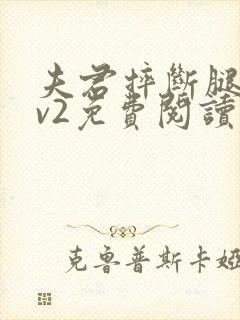 夫君摔斷腿
v2免費閱讀
克魯普斯卡婭